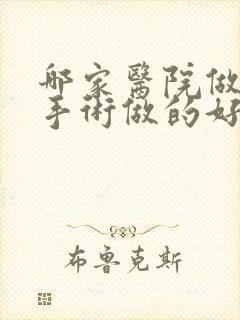 哪家醫院做
手術做的好
布魯克斯